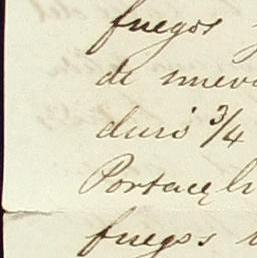 fuegos
de nuev
duró 3/4
Portac
fuegos